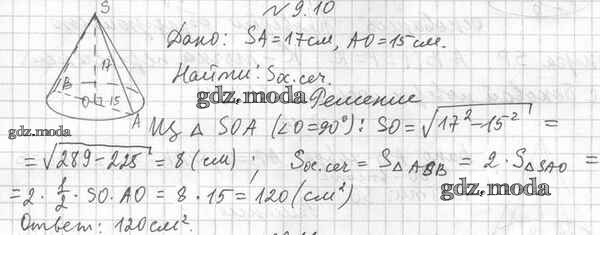 № 9.10
S
17
B
O
15
A
Дано: SA = 17 см, AO = 15 см.
Найти: Sос.сеч.
gdz.moda
Решение
gdz.moda
Из △ SOA (∠O = 90°): SO = √17² − 15² =
= √289 − 225 = 8 (см) ; Sос.сеч = S△ASB = 2 · S△SAO =
gdz.moda
= 2 · 1/2 · SO · AO = 8 · 15 = 120 (см²)
Ответ: 120 см².